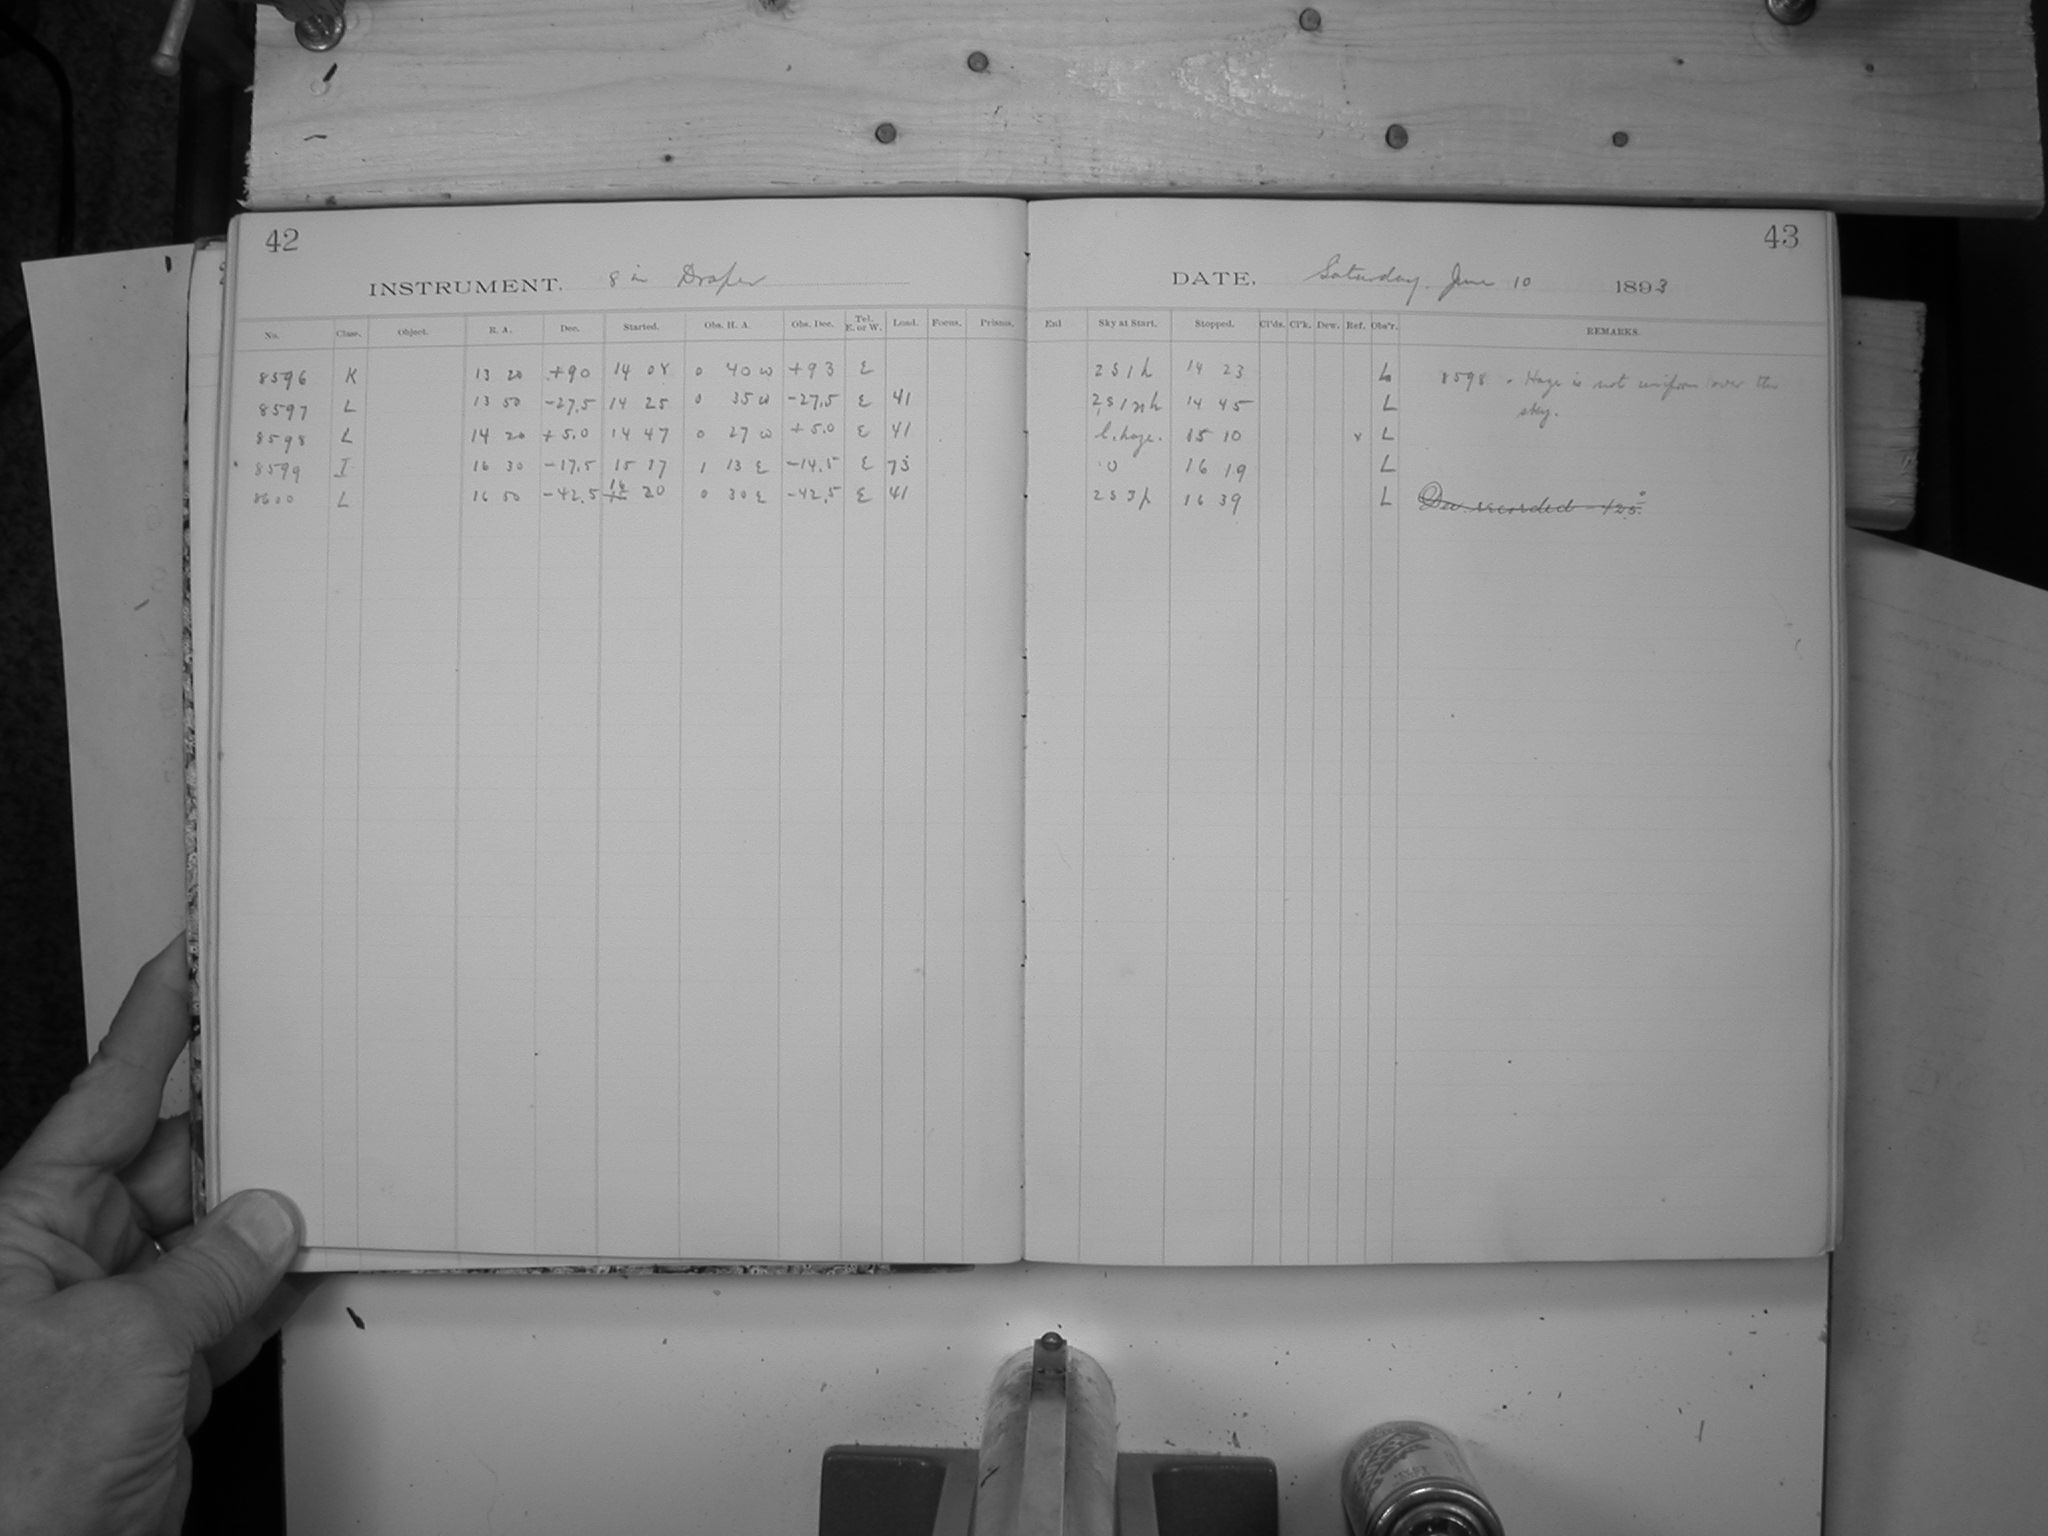 42
INSTRUMENT. 8 in Draper
No. Class. Object. R. A. Dec. Started. Obs. H. A. Obs. Dec. Tel. E. or W. Load. Focus. Prisms.
8596 K 13 20 +90 14 08 0 40 W +93 E
8597 L 13 50 -27.5 14 25 0 35 W -27.5 E 41
8598 L 14 20 +5.0 14 47 0 27 W +5.0 E 41
8599 I 16 30 -17.5 15 17 1 13 E -14.5 E 73
8600 L 16 50 -42.5 16 20 0 30 E -42.5 E 41
43
DATE. Saturday, June 10 1893
Enl Sky at Start. Stopped. Cl'ds. Cl'k. Dew. Ref. Obs'r. REMARKS.
2 S 1 h 14 23 L 8598. Haze is not uniform over the
2 S 1 m h 14 45 L sky.
l. haze. 15 10 x L
0 16 19 L
2 S 3 h 16 39 L Dec. recorded -425°